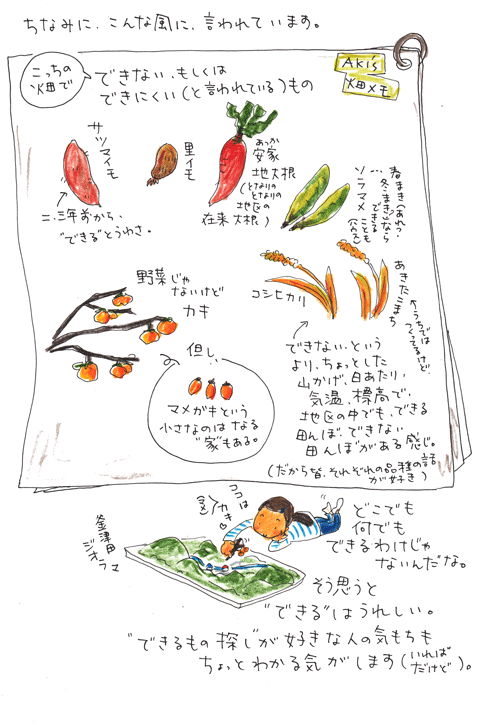 ちなみに、こんな風に、言われています。
Aki's
畑メモ
こっちの
畑で
できない、もしくは
できにくい(と言われている)もの
サツマイモ
二、三年前から、
"できる"とうわさ。
里イモ
あっか
安家
地大根
(となりの
となりの
地区の
在来大根)
ソラマメ
春まき(あれ?
冬まきなら
できる
ことも
野菜じゃ
ないけど
カキ
但し、
マメガキという
小さなのは なる
"家"もある。
コシヒカリ
あきたこまち
←うちでは
つくってるけど、
できない、という
より、ちょっとした
山かげ、日あたり、
気温、標高で、
地区の中でも、できる
田んぼ、できない
田んぼがある感じ。
(だから皆、それぞれの品種の話
が好き)
ココは
カキ
釜津田
ジオラマ
どこでも
何でも
できるわけじゃ
ないんだな。
そう思うと
"できる"はうれしい。
"できるもの探し"が好きな人の気もちも
ちょっとわかる気がします(いれば
だけど)。